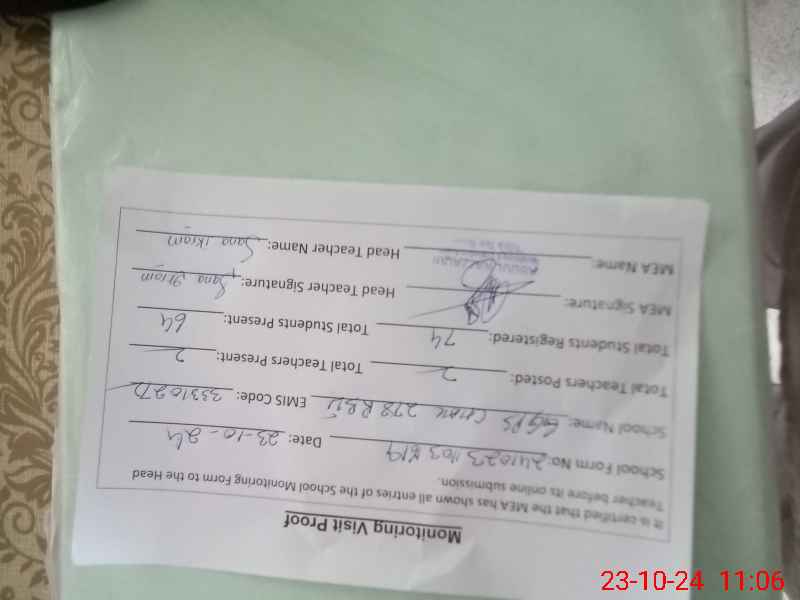 Monitoring Visit Proof
It is certified that the MEA has shown all entries of the School Monitoring Form to the Head
Teacher before its online submission.
School Form No: Date: 23-10-24
School Name: GGPS CHAK 278 R.B II EMIS Code:
Total Teachers Posted: 2 Total Teachers Present: 2
Total Students Registered: 74 Total Students Present: 64
MEA Signature: Head Teacher Signature: Sana
MEA Name: Head Teacher Name: Sana ikram
23-10-24 11:06